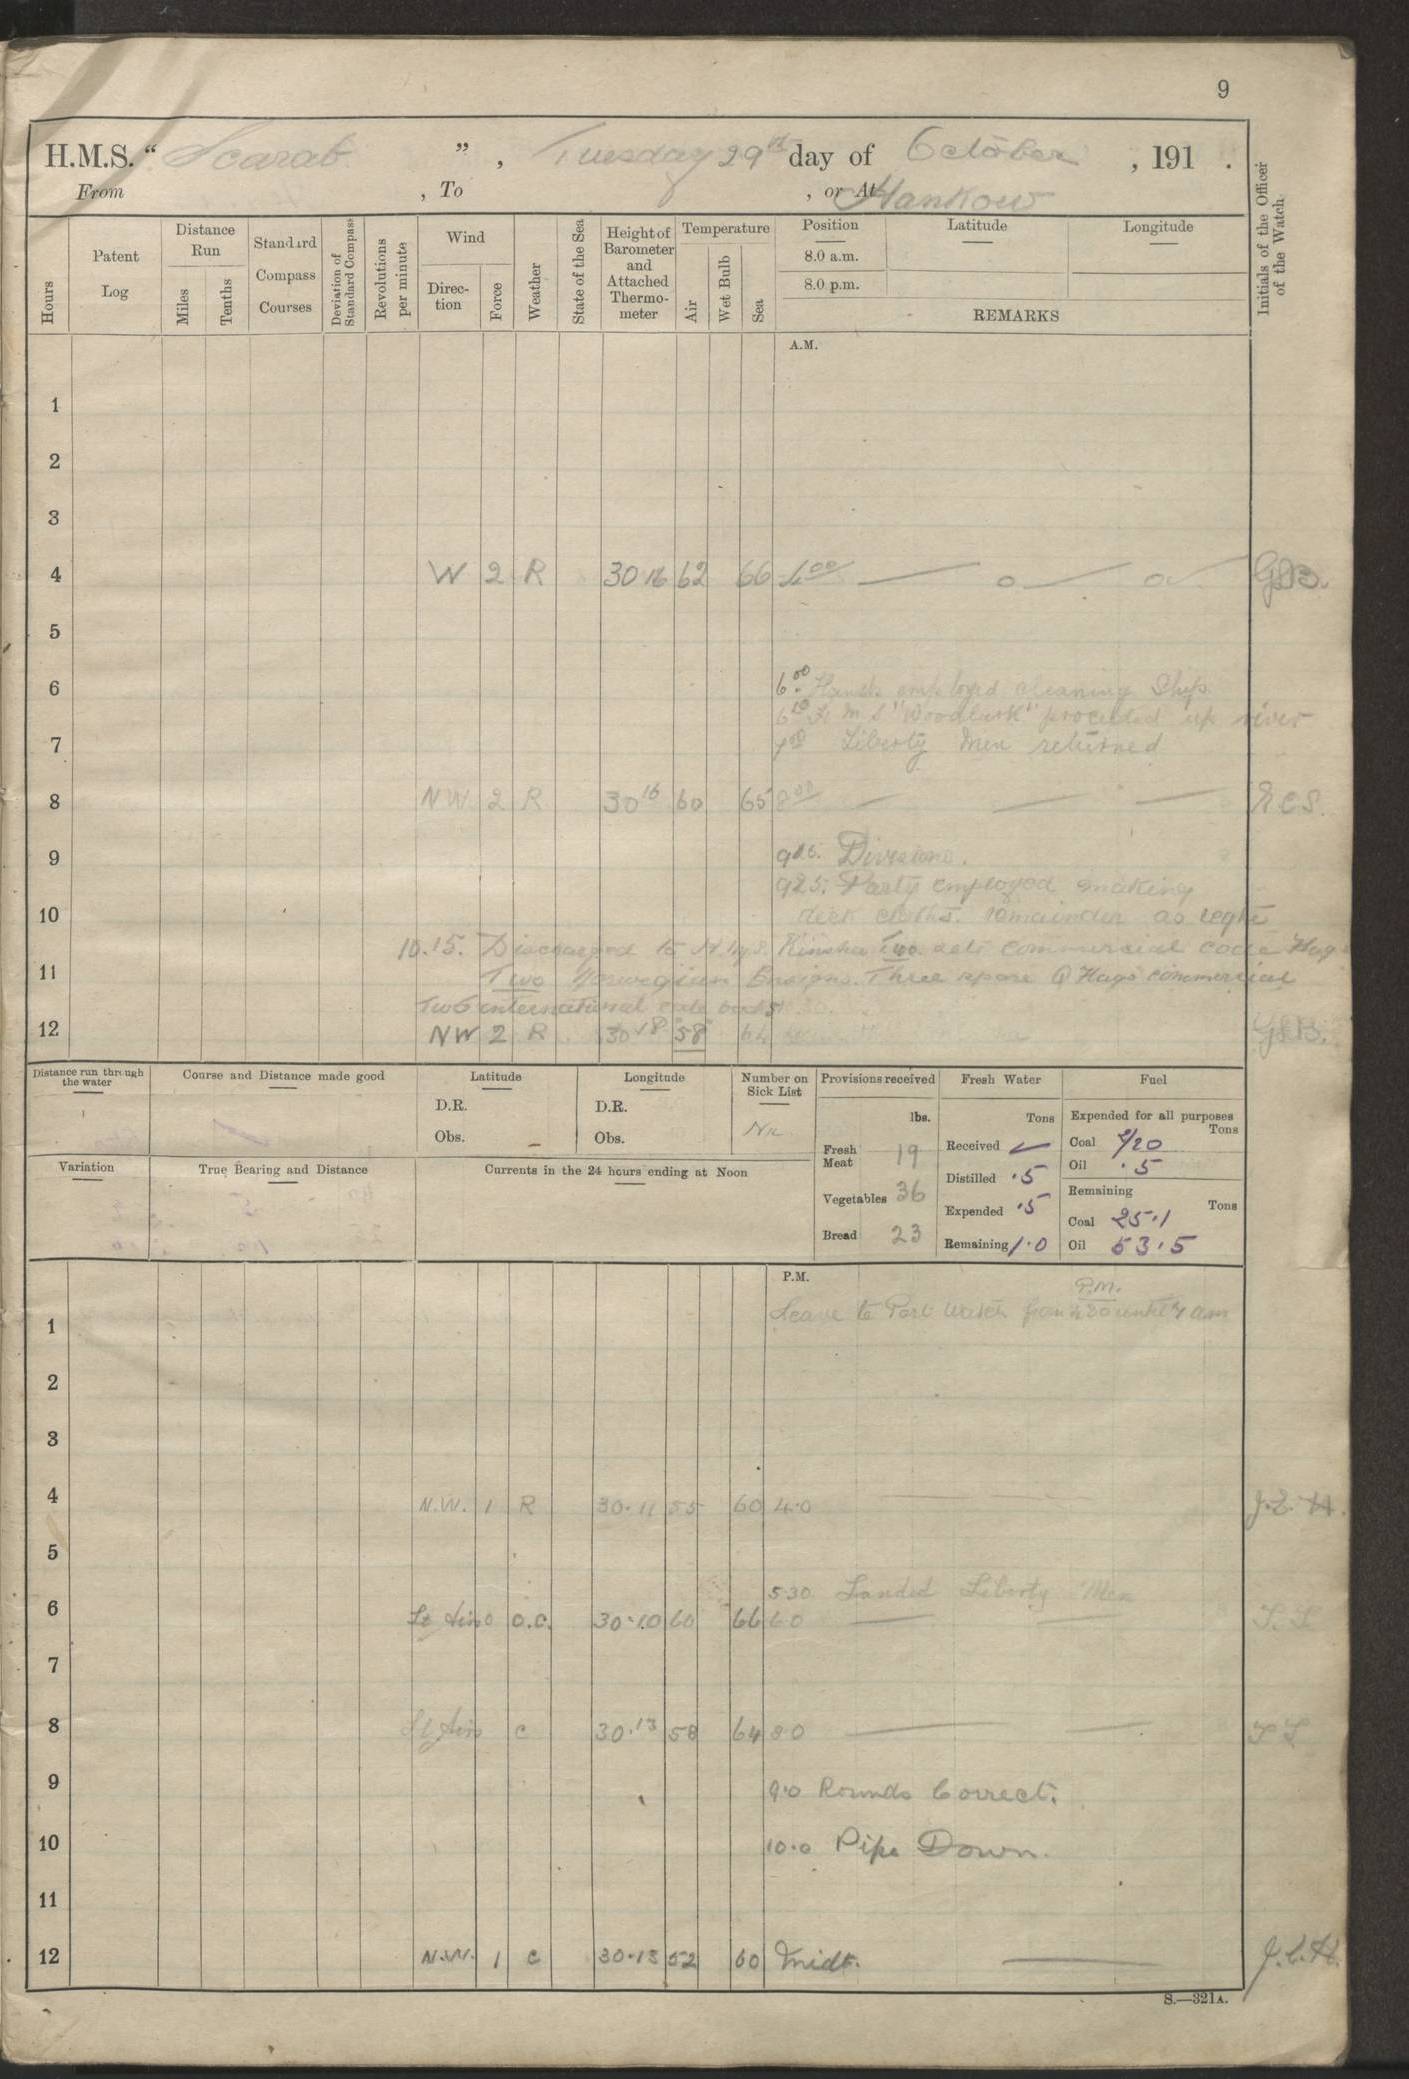 9
H.M.S. " Scarab ", Tuesday 29th day of October, 191 .
From , To , or At Hankow
Hours
Patent Log
Distance Run
Miles
Tenths
Standard Compass Courses
Deviation of Standard Compass
Revolutions per minute
Wind
Direction
Force
Weather
State of the Sea
Height of Barometer and Attached Thermometer
Temperature
Air
Wet Bulb
Sea
Position
8.0 a.m.
8.0 p.m.
Latitude
Longitude
REMARKS
Initials of the Officer of the Watch.
A.M.
1
2
3
4 W 2 R 30 16 62 66 4 00 G.B.
5
6 6 00 Hands employed cleaning Ship
6 10 H M S "Woodlark" proceeded up river
7 7 00 Liberty Men returned
8 NW 2 R 30 16 60 65 8 00 R C S.
9 9 15. Divisions.
9 25. Party employed making
10 deck cloths. remainder as reqte
10.15. Discharged to H.M.S. Kinsha Two sets commercial code Flags
11 Two Norwegian Ensigns. Three spare Q Flags commercial
Two international code books
12 NW 2 R 30 18 58 64 G.B.
Distance run through the water
Course and Distance made good
Latitude
D.R.
Obs.
Longitude
D.R.
Obs.
Number on Sick List
Nil
Provisions received
lbs.
Fresh Meat 19
Vegetables 36
Bread 23
Fresh Water
Tons
Received
Distilled .5
Expended .5
Remaining 1.0
Fuel
Expended for all purposes
Tons
Coal 1/20
Oil .5
Remaining
Tons
Coal 25.1
Oil 53.5
Variation
True Bearing and Distance
Currents in the 24 hours ending at Noon
P.M.
P.M.
1 Leave to Port Watch from 4 30 until 7 am
2
3
4 N.W. 1 R 30.11 55 60 4.0 J.L.H.
5
5 30 Landed Liberty Men
6 Lt Airs 0 O.C. 30.10 60 66 6 0 T.S
7
8 Lt Airs C 30.13 58 64 8 0 T S
9 9.0 Rounds Correct.
10 10.0 Pipe Down.
11
12 N.W. 1 C 30.13 52 60 Midt. J.L.H.
S.—321A.